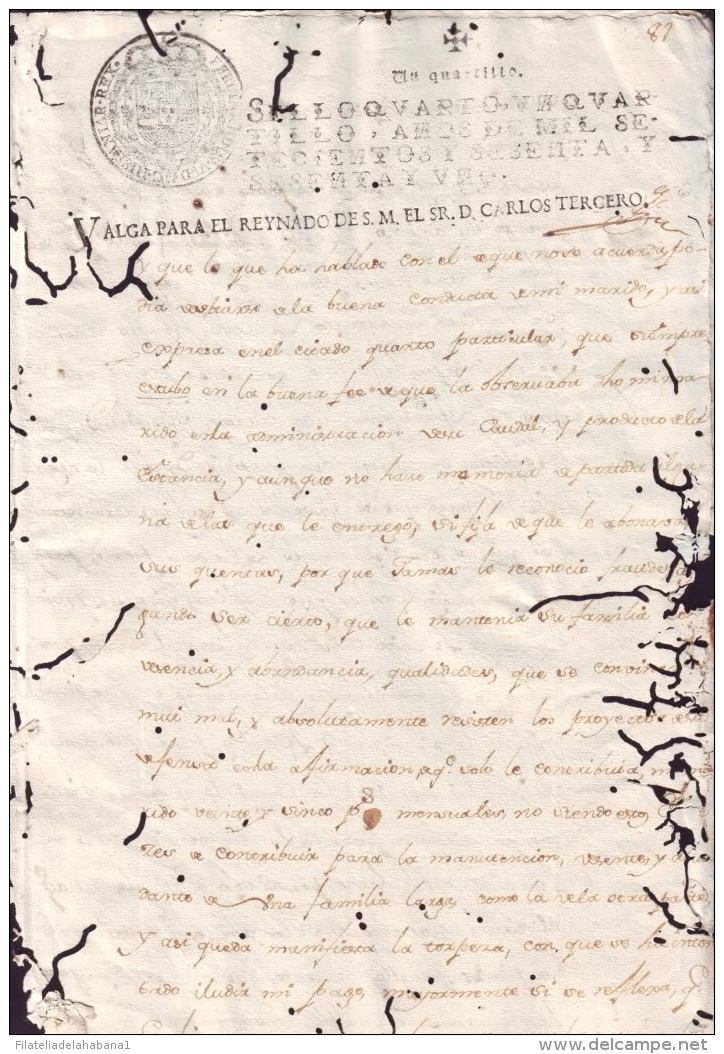 87
Un quartillo.
SELLO QVARTO, VN QVAR-
TILLO, AÑOS DE MIL SE-
TECIENTOS Y SESENTA, Y
SESENTA Y VNO.
VALGA PARA EL REYNADO DE S. M. EL SR. D. CARLOS TERCERO.
y que lo que ha hablado con el es que no se acuerda, po-
dia de la buena conducta de mi marido, y asi
expresa en el citado quarto particular, que siempre
estubo en la buena fee de que la observaba dho mi ma
rido en la administracion de su Caudal, y producto de la
Estancia, y aunque no hase memoria de partida algu
na de las que le entregó, si fija de que le abonava
sus quentas, por que Jamas le reconocio fraude,
ser cierto, que le mantenia su familia
desencia, y abundancia, qualidades, que se
mui mal, y absolutamente resisten los proyectos de su
defensa en la afirmacion, de q.e solo le contribuia, mi ma
rido veinte y sinco p.s mensuales, no siendo estos
res de contribuir para la manutencion, desente, y
dante de una familia larga, como la de la otra parte,
y asi queda manifiesta la torpeza, con que se ha inten
tado iludir mi pago, mayormente si se reflexa, q.e
Filateliadelahabana1
delcampe.net